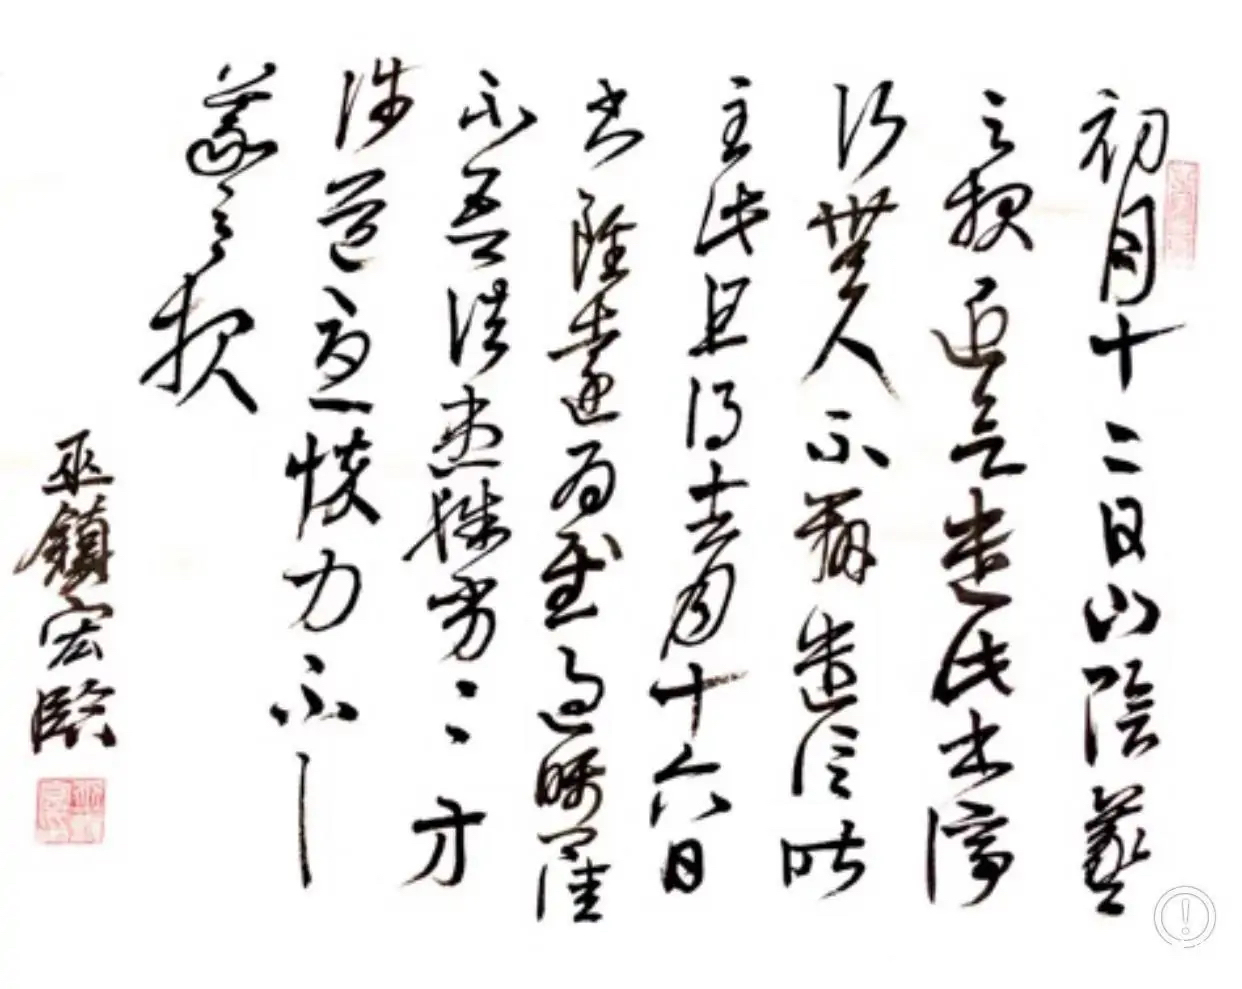 初月十二日山陰羲
之報近欲遣此書停
行無人不辦遣信昨
至此且得去月十六日
書雖遠為慰過囑佳
不吾諸患殊劣〻方
涉道憂悴力不具
羲之報
巫鎮宏臨